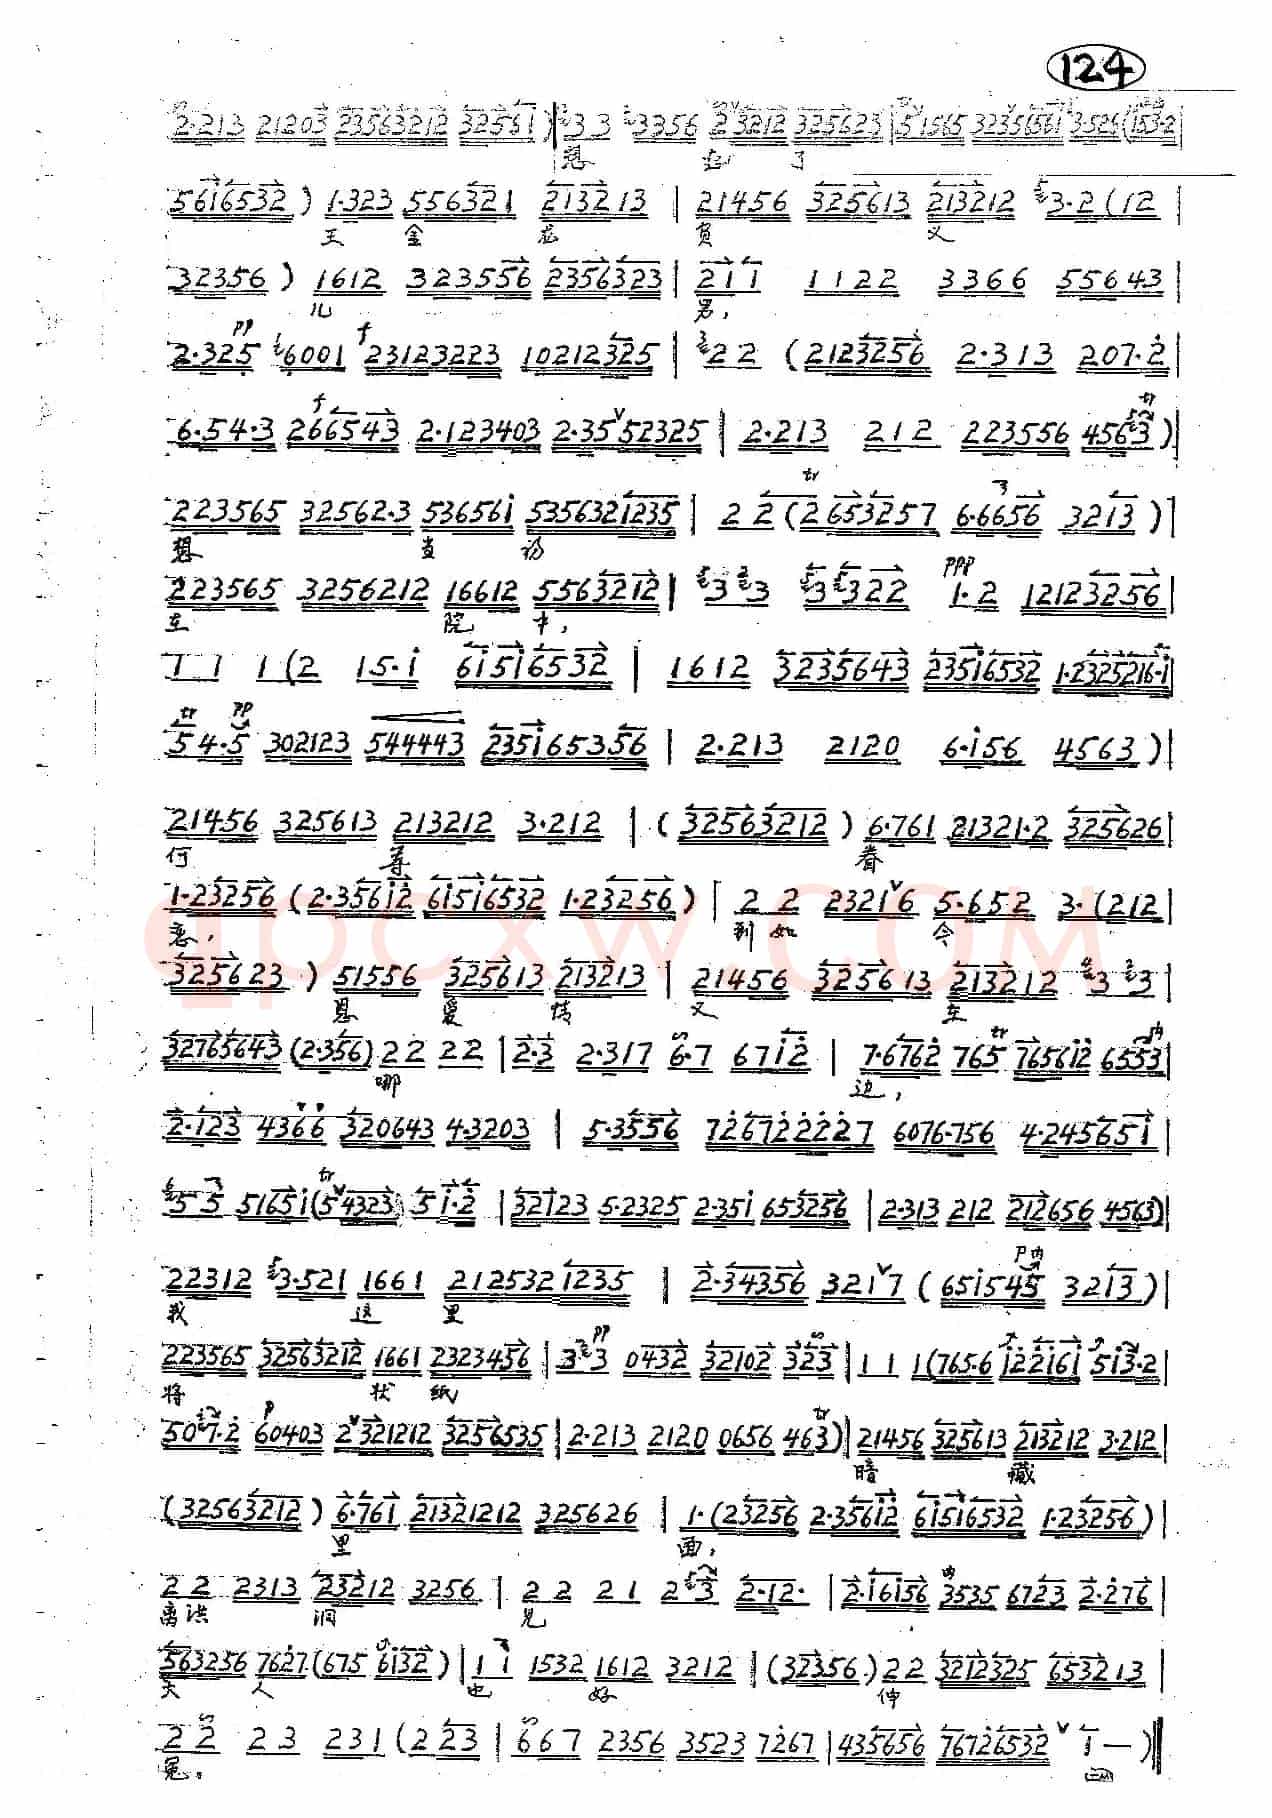 124
2·213 21203 23563212 32561 ) 33 3356 23212 325623 | 51565 32356561 3·526 (153·2 |
想 起 了
5616532 ) 1·323 556321 213213 | 21456 325613 213212 3·2 (12 |
王 金 龙 负 义
32356 ) 1612 323556 2356323 | 211 1122 3366 55643 |
儿 男,
pp f
2·325 6001 23123223 10212325 | 22 (2123256 2·313 207·2 |
f tr
6·54·3 266543 2·123403 2·3552325 | 2·213 212 223556 4563 ) |
tr
223565 32562·3 536561 5356321235 | 22 (2653257 6·6656 3213 ) |
想 当 初
ppp
223565 3256212 16612 5563212 | 33 3322 1·2 12123256 |
在 院 中,
11 1(2 15·1 61516532 | 1612 3235643 23516532 1·2325216·1 |
tr pp
54·5 302123 544443 235165356 | 2·213 2120 6·156 4563 ) |
21456 325613 213212 3·212 | ( 32563212 ) 6·761 21321·2 325626 |
何 等 眷
1·23256 (2·35612 61516532 1·23256 ) | 22 23216 5·652 3·(212 |
qpcxw.com
恋, 到 如 今
325623 ) 51556 325613 213213 | 21456 325613 213212 33 |
恩 爱 情 义 在
tr
32765643 (2·356) 22 22 | 2·3 2·317 6·7 6712 | 7·6762 765 765612 6553 |
哪 边,
2·123 4366 320643 4·3203 | 5·3556 726722227 6076·756 4·2456551 |
tr
55 51651(54323) 51·2 | 32123 5·2325 2·351 653256 | 2·313 212 212656 4563) |
22312 3·521 1661 2125321235 | 2·34356 3217 ( 651545 3213 ) |
我 这 里
pp
223565 32563212 1661 2323456 | 33 0432 32102 323 | 11 1(765·6 122161 513·2 |
将 状 纸
p tr
507·2 60403 2321212 3256535 | 2·213 2120 0656 463) | 21456 325613 213212 3·212 |
暗 藏
(32563212 ) 6·761 21321212 325626 | 1·(23256 2·35612 61516532 1·23256 ) |
里 面,
22 2313 23212 3256 | 22 21 23 2·12· | 2·16156 3535 6723 2·276 |
离 洪 洞 见
563256 7627·(675 6132 ) | 11 1532 1612 3212 | (32356·) 22 3212325 653213 |
大 人 也 好 伸
22 23 231 (223 | 667 2356 3523 7267 | 435656 76726532 1— ) ‖
冤。